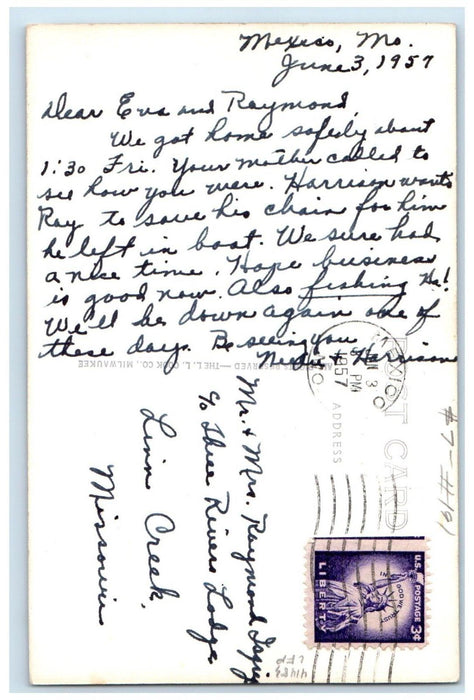 Mexico, Mo.
June 3, 1957
Dear Eva and Raymond,
We got home safely about
1:30 Fri. Your mother called to
see how you were. Harrison wants
Ray to save his chain for him
he left in boat. We sure had
a nice time. Hope business
is good now. Also fishing Ha!
We'll be down again one of
these days. Be seeing you
& Harrison
ALL RIGHTS RESERVED — THE L. L. COOK CO., MILWAUKEE
POST CARD
ADDRESS
MEXICO
JUN 3
PM
1957
MO.
Mr. & Mrs. Raymond
c/o Three Rivers Lodge
Linn Creek,
Missouri
U.S. POSTAGE
3¢
LIBERTY
IN GOD WE TRUST